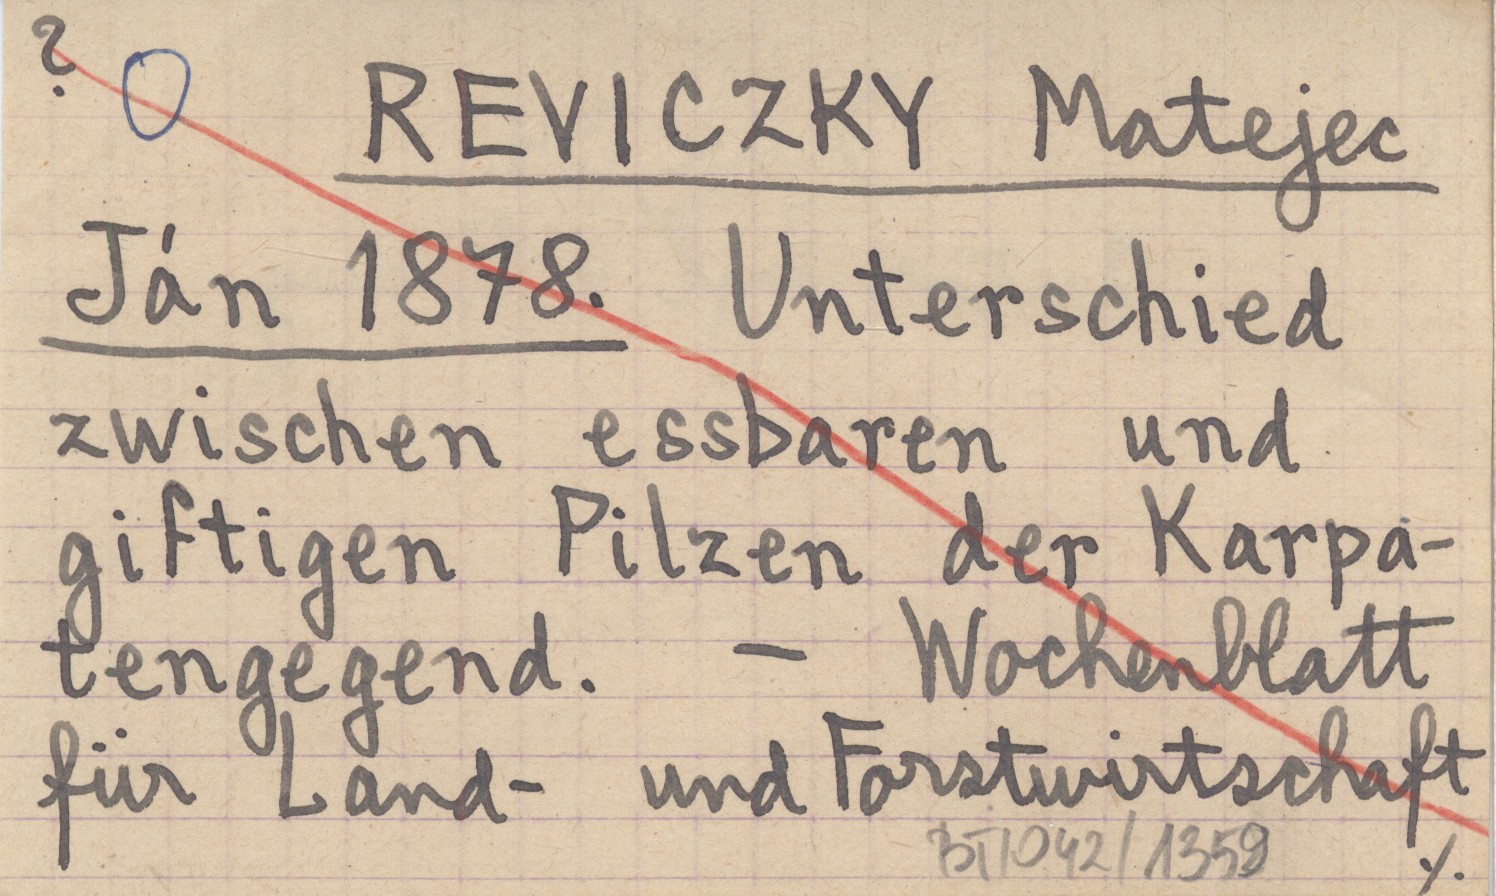 ?
REVICZKY Matejec
Ján 1878. Unterschied
zwischen essbaren und
giftigen Pilzen der Karpa-
tengegend. — Wochenblatt
für Land- und Forstwirtschaft
BT/042/1359
·/.